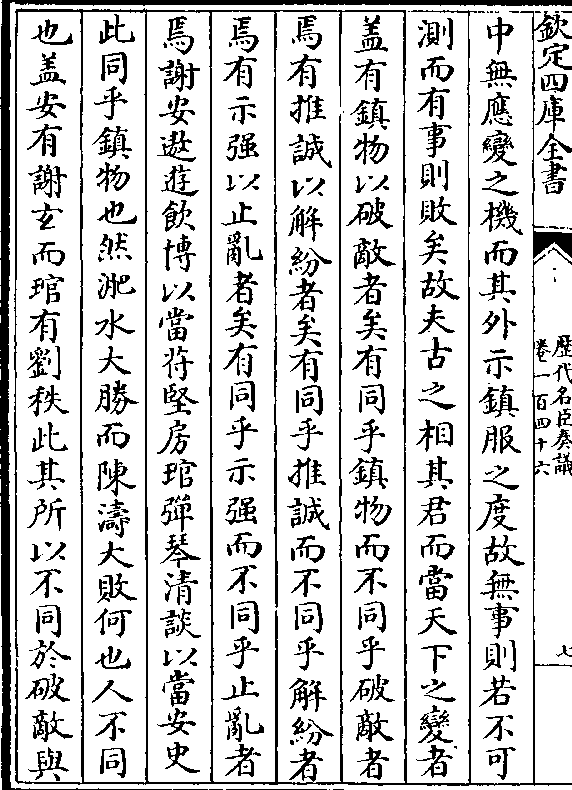 欽定四庫全書
歷代名臣奏議
卷一百四十六
七
中無應變之機而其外示鎮服之度故無事則若不可
測而有事則敗矣故夫古之相其君而當天下之變者
盖有鎮物以破敵者矣有同乎鎮物而不同乎破敵者
焉有推誠以解紛者矣有同乎推誠而不同乎解紛者
焉有示强以止亂者矣有同乎示强而不同乎止亂者
焉謝安遨遊飲博以當苻堅房琯彈琴清談以當安史
此同乎鎮物也然淝水大勝而陳濤大敗何也人不同
也盖安有謝玄而琯有劉秩此其所以不同於破敵與